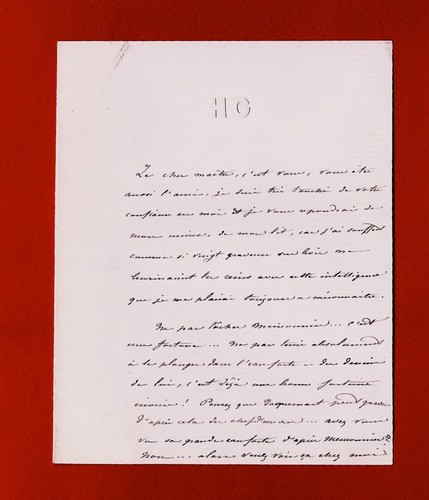 HO
Le cher maître, c'est vous, vous êtes
aussi l'ami. je suis très touché de votre
confiance en moi & je vous répondrai de
mon mieux, de mon lit, car j'ai souffert
comme si vingt graveurs sur bois me
burinaient les reins avec cette intelligence
que je me plairai toujours a méconnaître.
Ne pas lâcher Meissonnier... c'est
une fortune... ne pas tenir absolument
à le plonger dans l'eau forte - du dessin
de lui, c'est déjà une bonne fortune
inouie! Pensez que Jacquemart peut graver
d'après cela des chefs d'œuvre... avez vous
vu sa grande eau forte d'après Meissonnier?
Non... alors venez voir ça chez moi